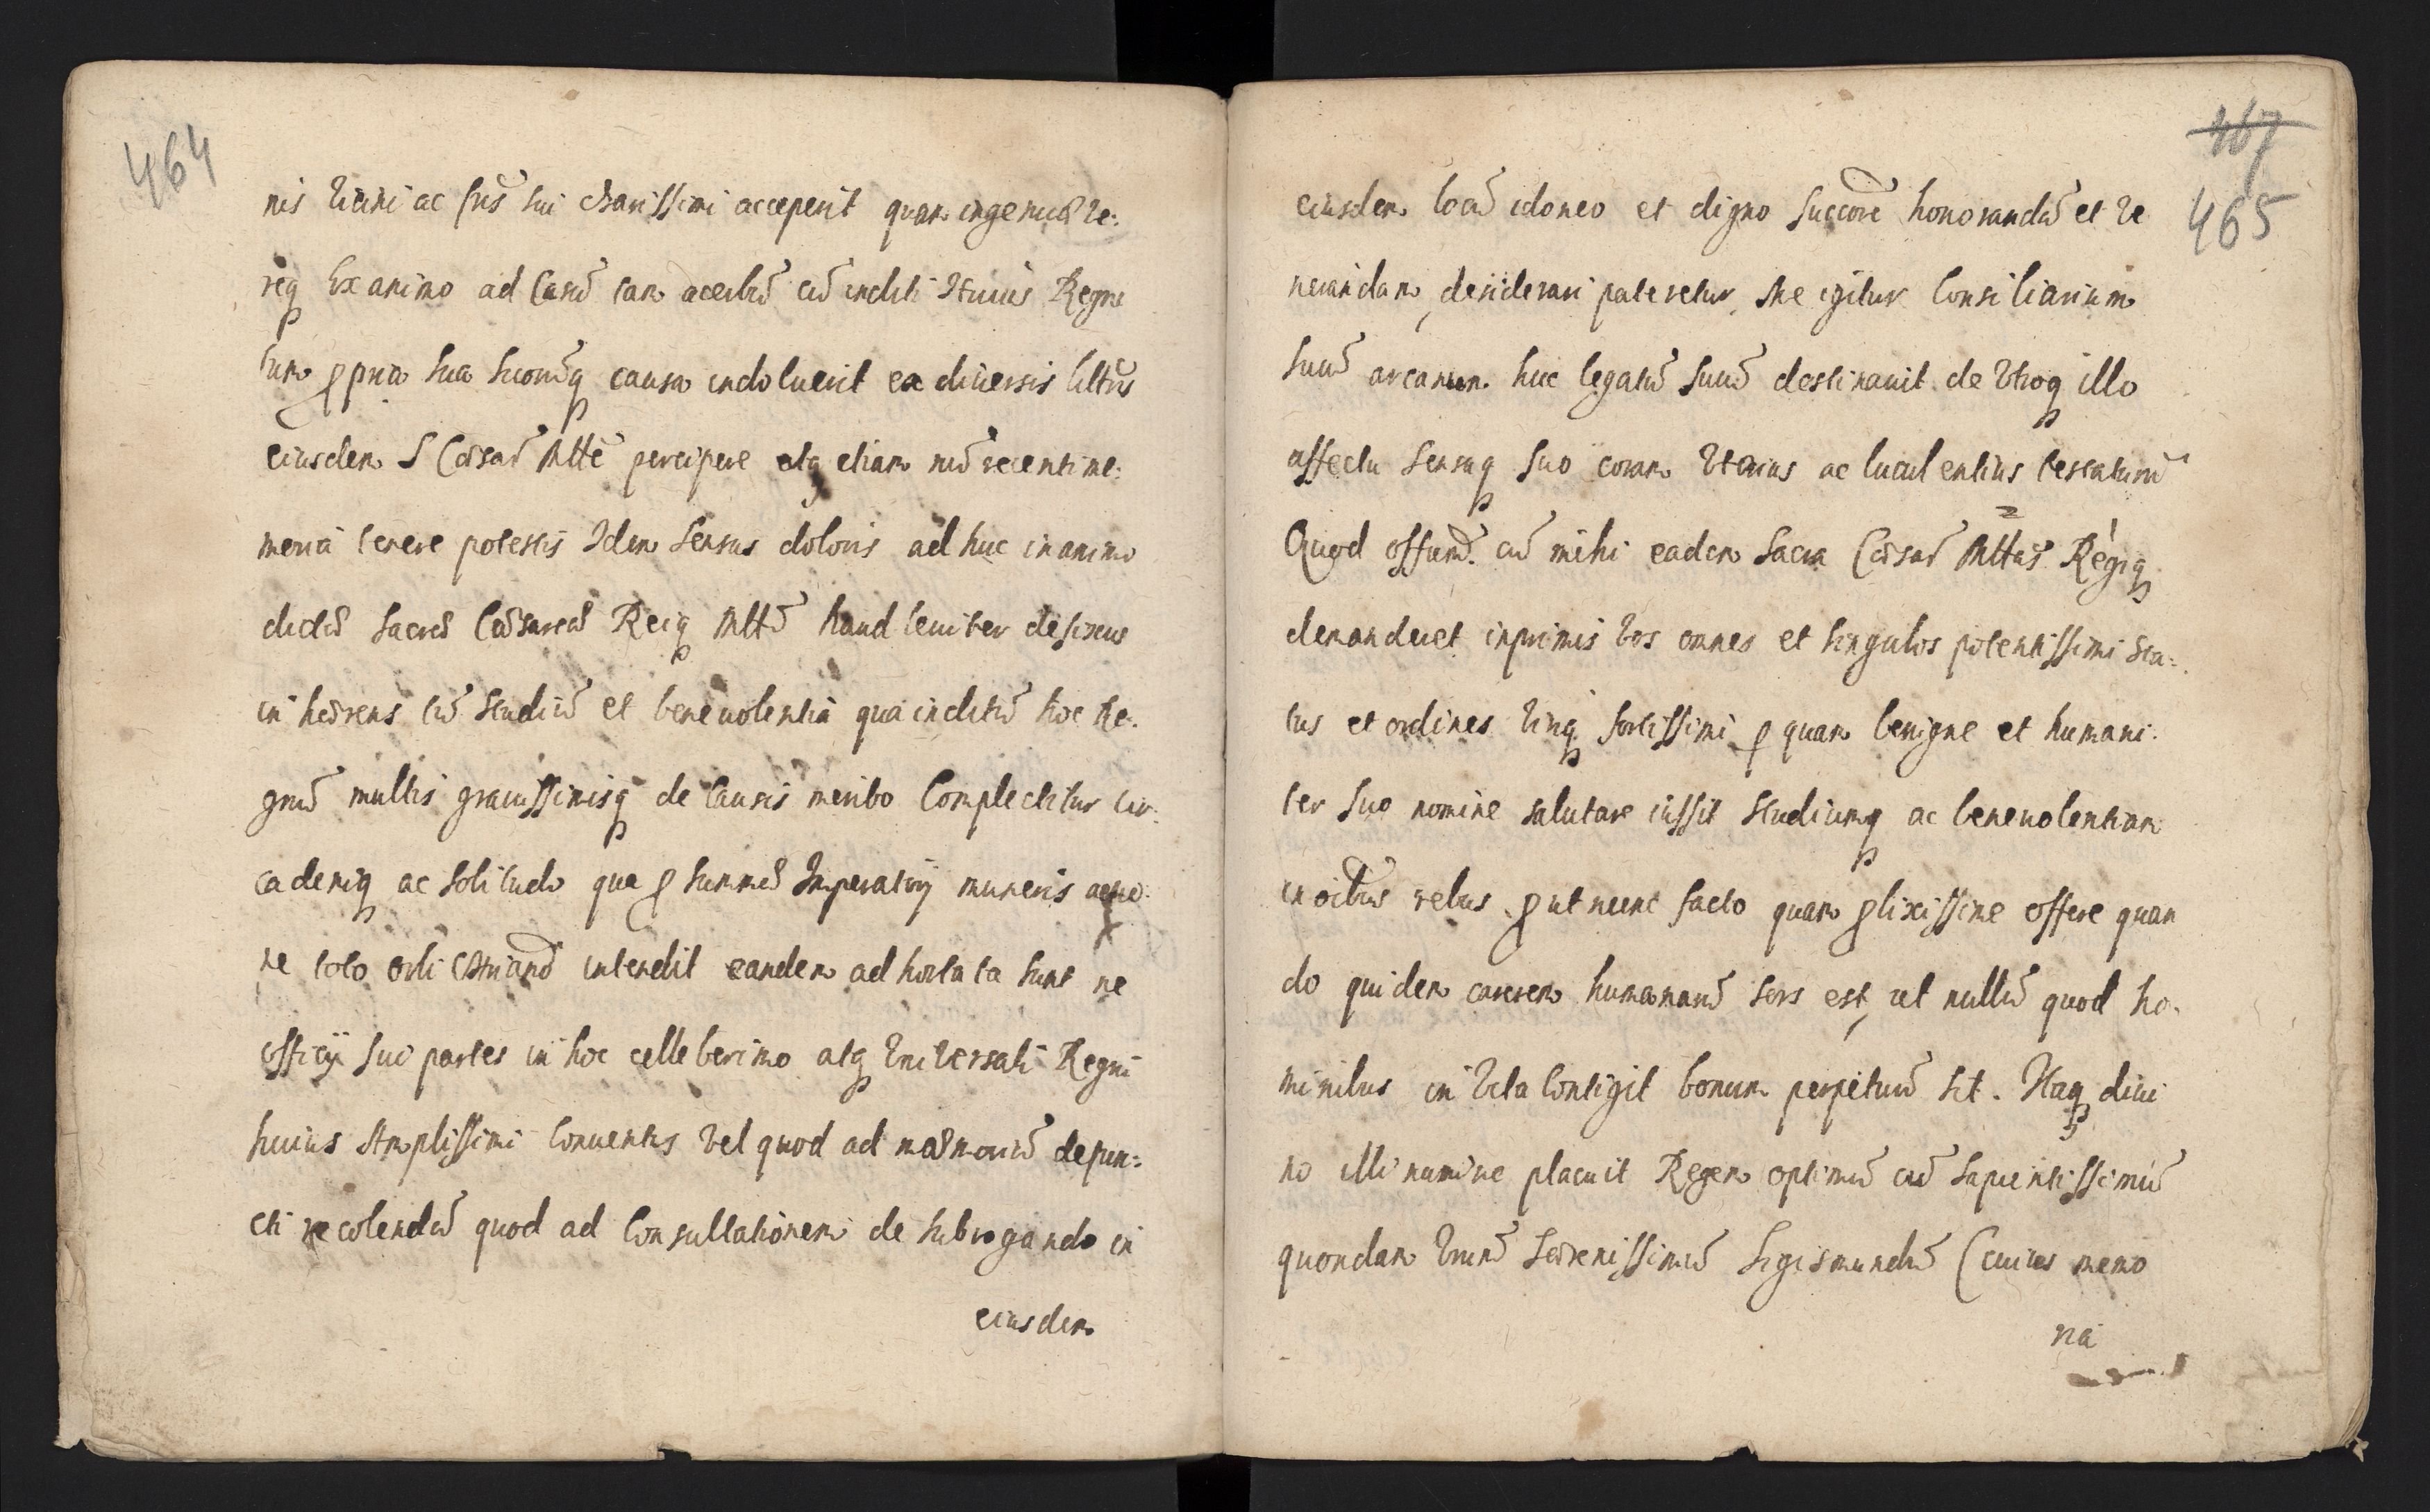 464
nis Vicini ac fr̃is sui charissimi acceperit quam ingenuæ ve:
req̃ Ex animo ad Casũ tam acerbũ cũ incliti Huius Regni
tum ꝓpria sua suorũq̃ causa indoluerit ex diuersis littr̃is
eiusdem S Cæsar̃ Mttẽ percipere atq̃ etiam nũ recenti me:
moria tenere potestis Idem sensus doloris ad huc in animo
dictæ Sacræ Cæsareæ Reiq̃ Mttĩs haud leuiter defixus
in hærens cũ studiũ et beneuolentia qua inclitũ hoc Re:
gnũ multis grauissimisq̃ de Causis merito Complectitur cur:
ca deniq̃ ac solitudo qua ꝓ summæ Imperatorij muneris
ne toto orbi Chrianõ intendit eandem ad hortata sunt ne
officij sui partes in hoc celleberimo atq̃ Vniversali Regni
huius Amplissimi Conuentus Vel quod ad mæmoriã defun:
cti recolendã quod ad Consultationem de subrogando in
eiusdem
467
465
eiusdem locũ idoneo et digno succorẽ honorandũ et ve
nerandam, desiderari pateretur, Me igitur Consiliarium
suũ arcanum huc legatũ suũ destinauit de Vtroq̃ illo
affectu sensuq̃ suo coram Vterius ac luculentius testaturũ
Quod offum̃. cũ mihi eadem Sacra Cæsar̃ Mttas̃ Regiq̃
demandaret inprimis Vos omnes et singulos potentissimi Sta:
tus et ordines Viriq̃ fortissimi ꝑ quam benigne et humani:
ter suo nomine salutare iussit studiumq̃ ac beneuolentiam
in oibũs rebus ꝓut nunc facto quam ꝓlixissime offere quan
do quidem rerum humanarũ sors est, ut nullũ quod ho:
minibus in Vita Contigit bonum perpetuũ sit. Itaq̃ diui
no illi numine placuit Regem optimũ cũ sapientissimũ
quondam Vnũ Særenissimũ Sigismundũ (cuius memo
ria